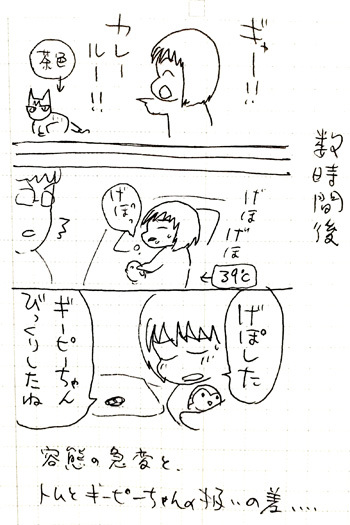 ギャー!!
カレー
ルー!!
茶色
数時間後
げほ
げほ
げぼっ
39℃
げぽした
ギーピーちゃん
びっくりしたね
容態の急変と、
トムとギーピーちゃんの扱いの差....